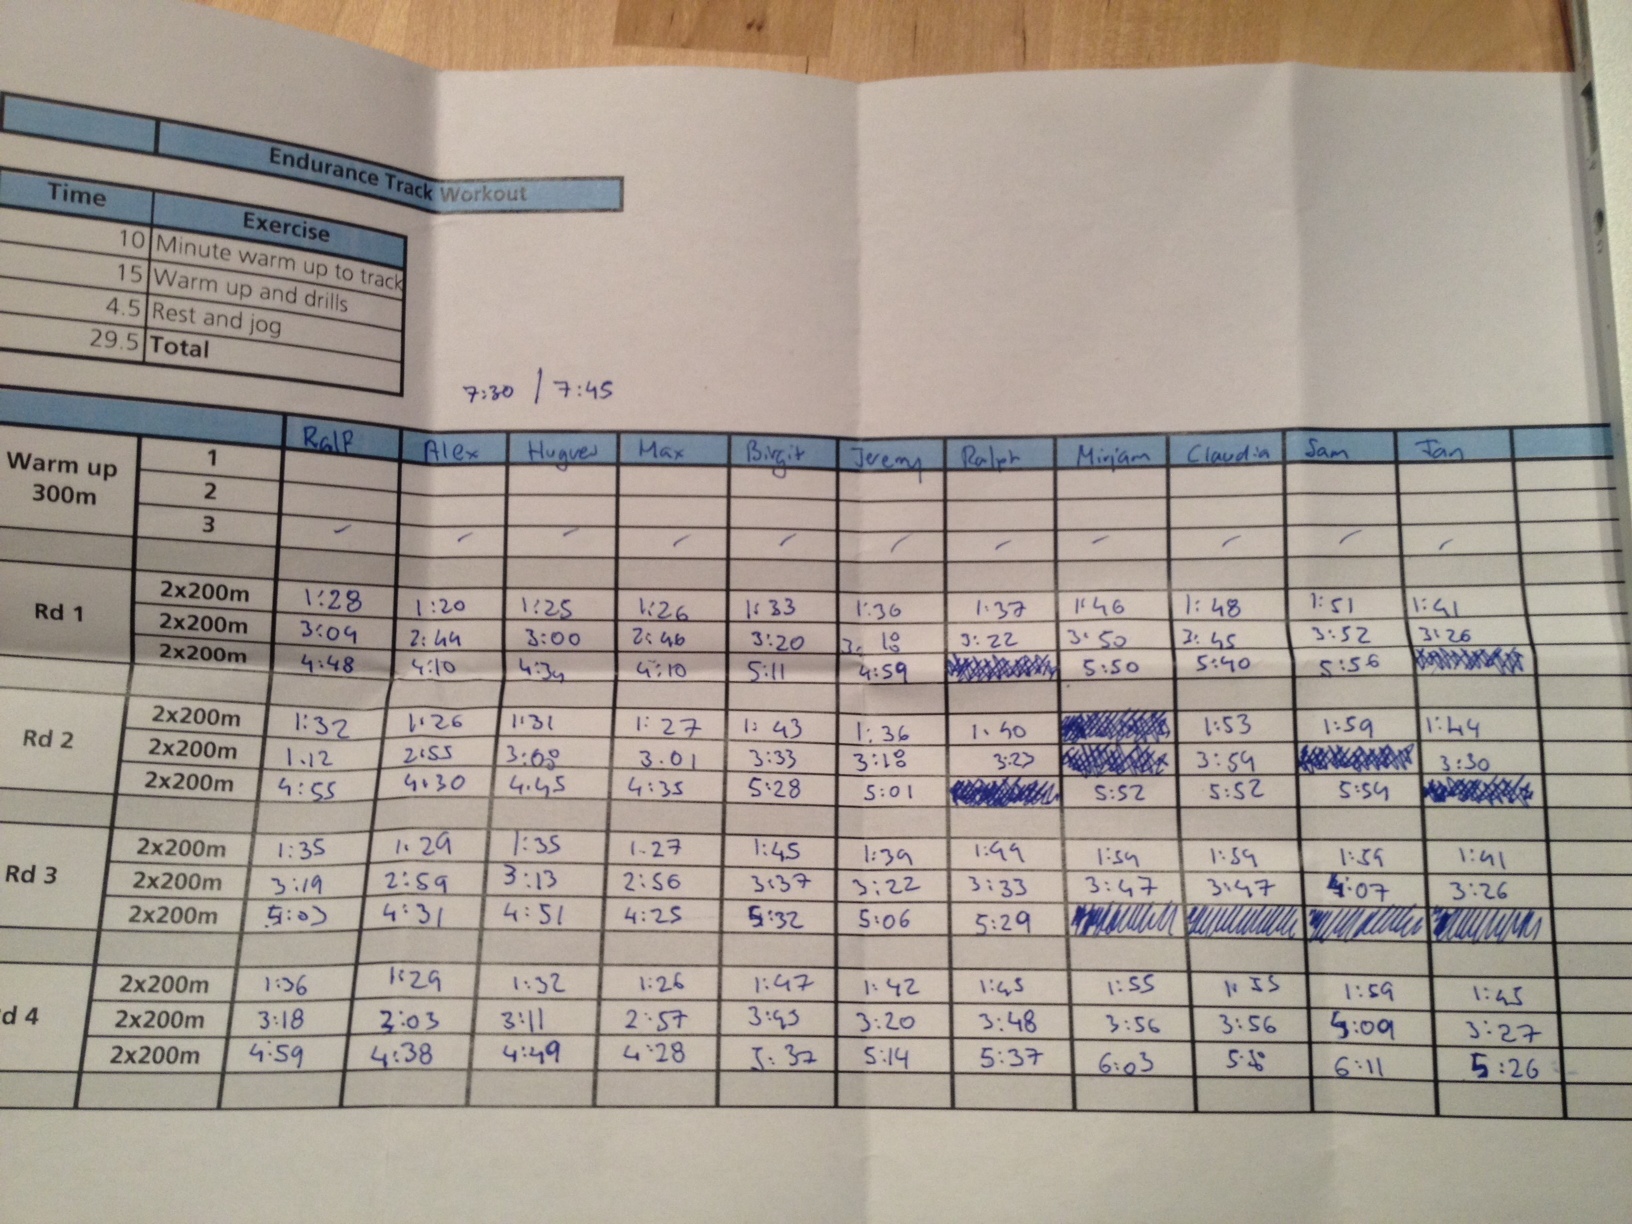 Endurance Track Workout
Time Exercise
10 Minute warm up to track
15 Warm up and drills
4.5 Rest and jog
29.5 Total
7:30 / 7:45
Ralf Alex Hugues Max Birgit Jeremy Ralph Mirjam Claudia Sam Jan
Warm up 300m 1
2
3
Rd 1 2x200m 1:28 1:20 1:25 1:26 1:33 1:36 1:37 1:46 1:48 1:51 1:41
2x200m 3:09 2:44 3:00 2:46 3:20 3:18 3:22 3:50 3:45 3:52 3:26
2x200m 4:48 4:10 4:34 4:10 5:11 4:59 5:50 5:40 5:56
Rd 2 2x200m 1:32 1:26 1:31 1:27 1:43 1:36 1:40 1:53 1:59 1:44
2x200m 1.12 2:55 3:08 3.01 3:33 3:18 3:23 3:54 3:30
2x200m 4:55 4:30 4:45 4:35 5:28 5:01 5:52 5:52 5:54
Rd 3 2x200m 1:35 1:29 1:35 1:27 1:45 1:39 1:49 1:54 1:54 1:59 1:41
2x200m 3:19 2:59 3:13 2:56 3:37 3:22 3:33 3:47 3:47 4:07 3:26
2x200m 5:03 4:31 4:51 4:25 5:32 5:06 5:29
d 4 2x200m 1:36 1:29 1:32 1:26 1:47 1:42 1:45 1:55 1:55 1:59 1:45
2x200m 3:18 3:03 3:11 2:57 3:43 3:20 3:48 3:56 3:56 4:09 3:27
2x200m 4:59 4:38 4:49 4:28 5:37 5:14 5:37 6:03 6:11 5:26